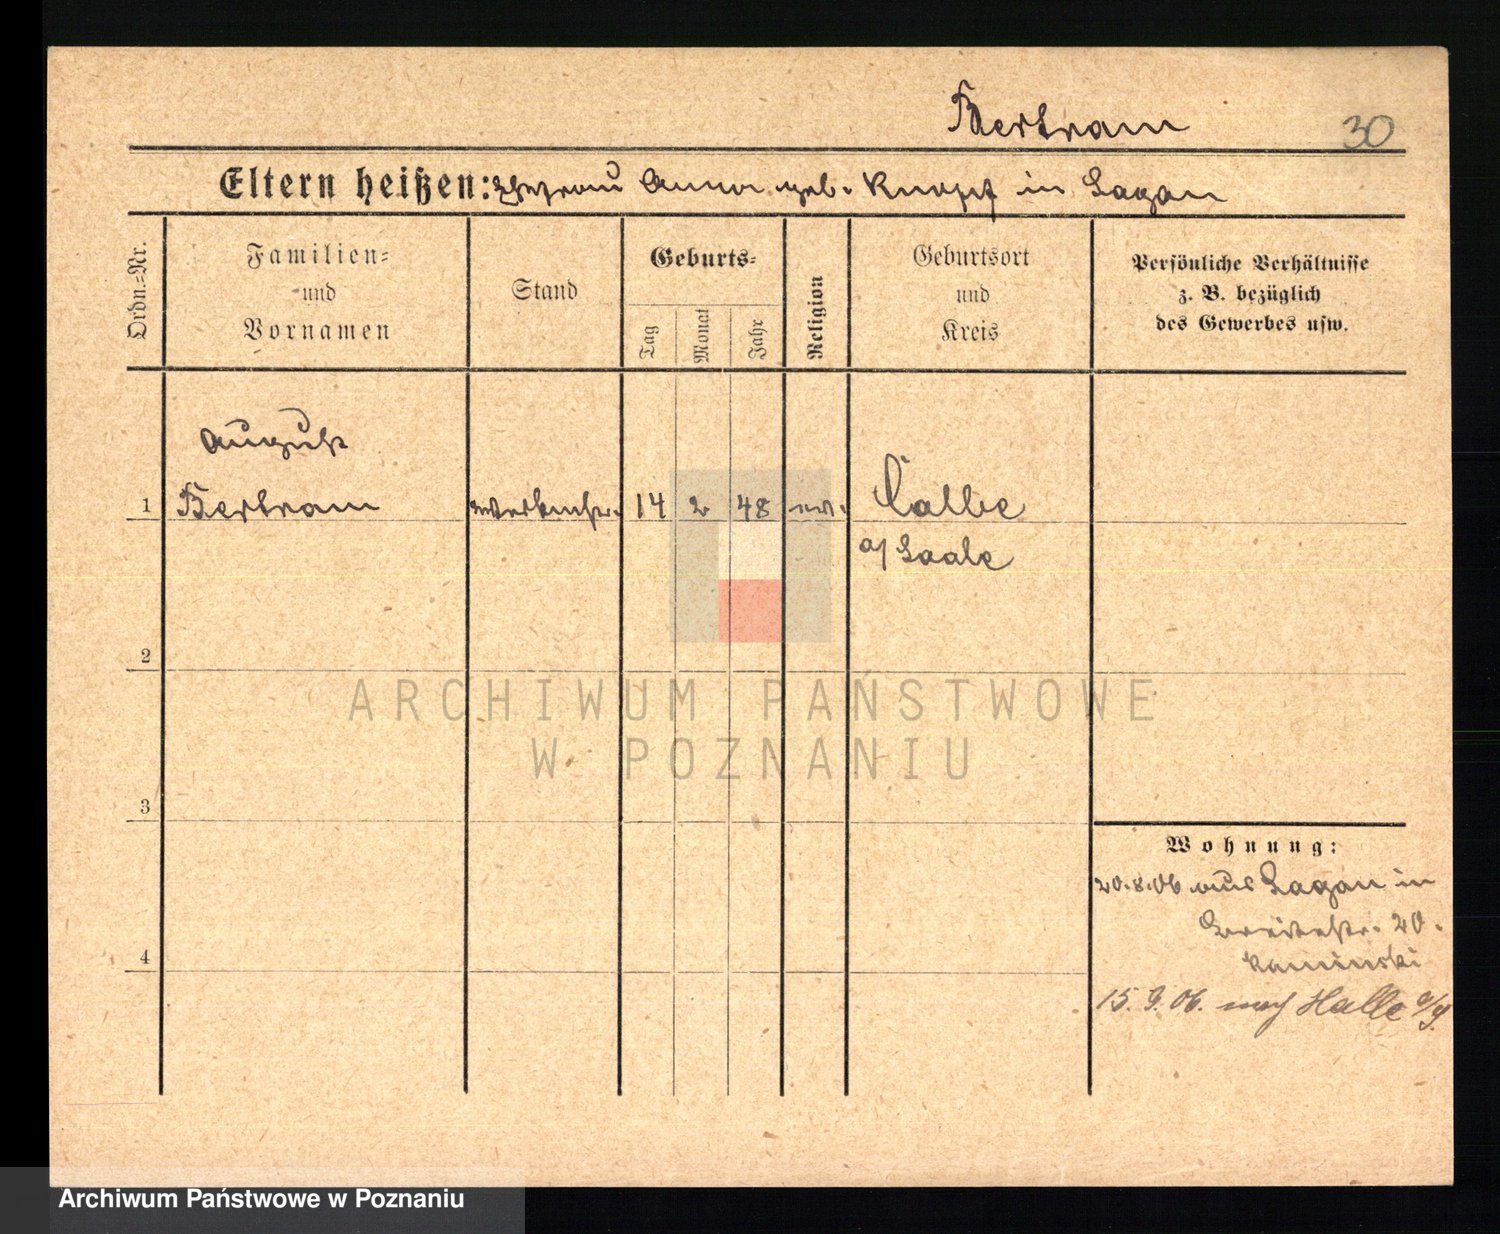 Bertram
30
Eltern heißen: Ehefrau Anna geb. Knopf in Sagan
Ordn.-Nr.
Familien-
und
Vornamen
Stand
Geburts-
Tag
Monat
Jahr
Religion
Geburtsort
und
Kreis
Persönliche Verhältnisse
z. B. bezüglich
des Gewerbes usw.
August
1 Bertram 14 2 48 ev. Calbe
a/ Saale
2
ARCHIWUM PAŃSTWOWE
W POZNANIU
3
Wohnung:
20.8.06 aus Sagan in
Breitestr. 20.
Kaminski
4
15.9.06. nach Halle a/S.
Archiwum Państwowe w Poznaniu